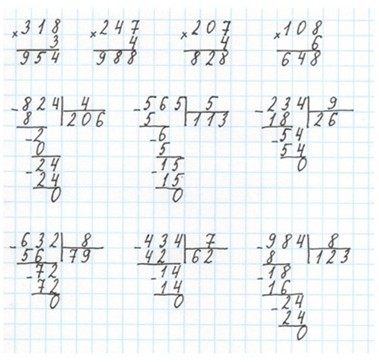 ×318 ×247 ×207 ×108
3 4 4 6
954 988 828 648
-824|4 -565|5 -234|9
8 206 5 113 18 26
-2 -6 -54
0 5 54
-24 -15 0
24 15
0 0
-632|8 -434|7 -984|8
56 79 42 62 8 123
-72 -14 -18
72 14 16
0 0 -24
24
0